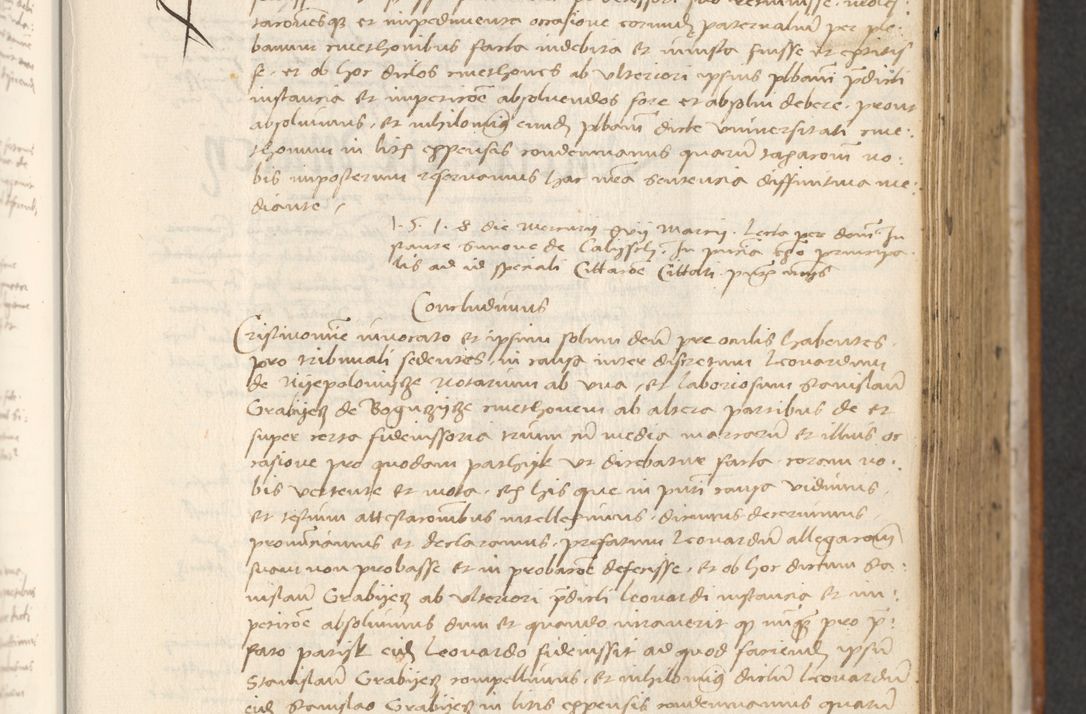 tacionesque et impedimenta occasione eorundem paternalium per ple¬
banum cmethonibus facta indebita et iniusta fuisse et
se, et ob hoc dictos cmethones ab ulteriori ipsius plbani pdicti
instancia et impeticõe absoluendos fore et absolui debere, prout
absoluimus, et nihilominq eundem plbanum dicte Vniuersitati cme¬
thonum in litis expensis condemnamus quarũ taxacionem no¬
bis imposterum reseruamus hac nrã sentencia diffinitiua me¬
diante /
1.5.1.8. die Mercurij xvij Marcij. Lecta per dom In
stante Simone de in pncia principa¬
lis ad id speciali Citacõe Citati
Concludimus
Cristi nomine inuocato et ipsum solum deũ pre oculis habentes,
pro tribunali sedentes, in causa inter discretum Leonardum
de Nyepolomycze notarium ab vna, et laboriosum Stanislaũ
Grabijecz de Boguczycze cmethonem ab altera partibus de et
super certa fideiussoria trium cũ media marcarũ et illius oc
casione pro quodam parthyk vt dicebatur facta, coram no¬
bis vertente et mota, ex his que in pnti causa vidimus,
et testium attestacionibus intelleximus, dicimus decernimus,
pronunciamus et declaramus, prefatum Leonardũ allegacionem
suam non probasse et in probacõe defecisse, et ob hoc dictum Sta¬
nislaũ Grabijecz ab vlteriori pdicti Leonardi instancia et im¬
peticõe absoluimus dum et quando iurauerit qp nunq̃ pro p¬
fato partyk eidem Leonardo fideiussit ad quod faciendum ipsũ
Stanislaũ Grabijecz compellimus, et nihilominq dictũ Leonardũ
eidem Stanislao Grabijecz in litis expensis condemnamus quarũ